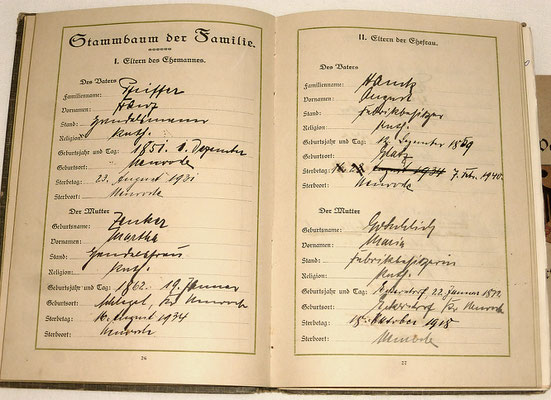 Stammbaum der Familie.
I. Eltern des Ehemannes.
Des Vaters
Familienname: Pfeiffer
Vornamen: Franz
Stand: Handelsmann
Religion: Kath.
Geburtsjahr und Tag: 1851. 8. Dezember
Geburtsort: Neurode
Sterbetag: 23. August 1931
Sterbeort: Neurode
Der Mutter
Geburtsname: Zenker
Vornamen: Martha
Stand: Handelsfrau
Religion: Kath.
Geburtsjahr und Tag: 1862. 19. Januar
Geburtsort: Schlegel, Kr. Neurode
Sterbetag: 16. August 1934
Sterbeort: Neurode
26
II. Eltern der Ehefrau.
Des Vaters
Familienname:
Vornamen: August
Stand: Fabrikbesitzer
Religion: Kath.
Geburtsjahr und Tag: Dezember
Geburtsort: Glatz
Sterbetag: August 1934 7. Febr. 1940
Sterbeort: Neurode
Der Mutter
Geburtsname:
Vornamen: Maria
Stand: Fabrikbesitzerin
Religion: Kath.
Geburtsjahr und Tag: 22. Januar
Geburtsort: Eckersdorf Kr. Neurode
Sterbetag: 18. Oktober 1918
Sterbeort: Neurode
27